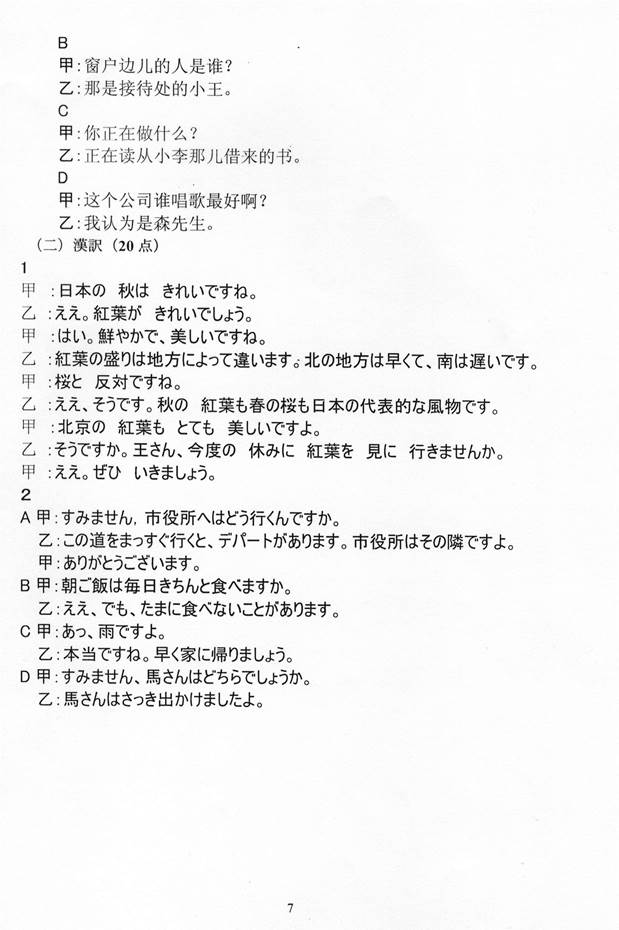 B
甲:窗户边儿的人是谁?
乙:那是接待处的小王。
C
甲:你正在做什么?
乙:正在读从小李那儿借来的书。
D
甲:这个公司谁唱歌最好啊?
乙:我认为是森先生。
（二）漢訳（20 点）
1
甲 :日本の 秋は きれいですね。
乙 :ええ。紅葉が きれいでしょう。
甲 :はい。鮮やかで、美しいですね。
乙 :紅葉の盛りは地方によって違います。北の地方は早くて、南は遅いです。
甲 :桜と 反対ですね。
乙 :ええ、そうです。秋の 紅葉も春の桜も日本の代表的な風物です。
甲 :北京の 紅葉も とても 美しいですよ。
乙 :そうですか。王さん、今度の 休みに 紅葉を 見に 行きませんか。
甲 :ええ。ぜひ いきましょう。
2
A 甲:すみません, 市役所へはどう行くんですか。
乙:この道をまっすぐ行くと、デパートがあります。市役所はその隣ですよ。
甲:ありがとうございます。
B 甲:朝ご飯は毎日きちんと食べますか。
乙:ええ、でも、たまに食べないことがあります。
C 甲:あっ、雨ですよ。
乙:本当ですね。早く家に帰りましょう。
D 甲:すみません、馬さんはどちらでしょうか。
乙:馬さんはさっき出かけましたよ。
7